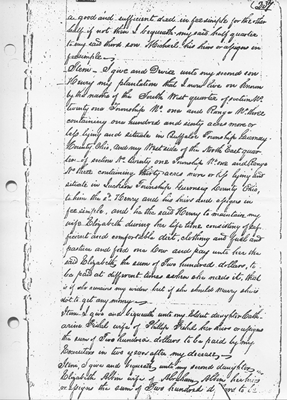 (237
a good and sufficient deed in fee simple for the other
half if not then I bequeath my said half quarter
to my said third son Michael his heirs & assigns in
fee simple
Item - I give and Devise unto my second son
Henry my plantation that I now live on known
by the name of the South West quarter of section No.
twenty one Township No. one and Range No. three
containing one hundred and sixty acres more or
less lying and situate in Buffalo Township Guernsey
County Ohio, and my West side of the North East quar
ter of section No. twenty one Township No. one and Range
No three containing thirty acres more or less lying and
situate in Township Guernsey County Ohio,
to him the Sd. Henry and his heirs and assigns in
fee simple, and he the said Henry to maintain my
wife Elizabeth during her life time consisting of suf
ficient and comfortable diet, clothing and fuel and
pasture and feed one Cow and pay unto her the
said Elizabeth the sum of Two hundred dollars, to
be paid at different times as she needs it, that
is if she remains my widow but if she should marry she is
not to get any money
Item I give and bequeath unto my Eldest daughter Cath
arine wife of Phillip her heirs & assigns
the sum of Two hundred dollars to be paid by my
Executors in two years after my decease
Item, I give and bequeath unto my second daughter
Elizabeth wife of Abraham her heirs
& assigns the sum of Two hundred dollars to be